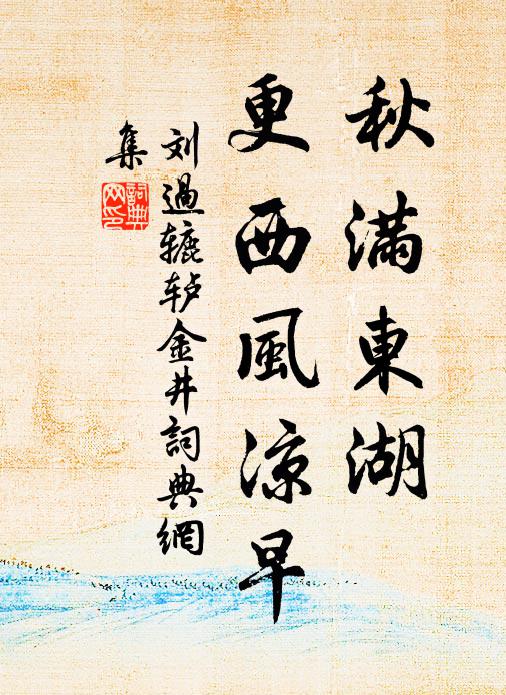 秋滿東湖
更西風涼早
刘過辘轳金井詞典網
集
詞典網印